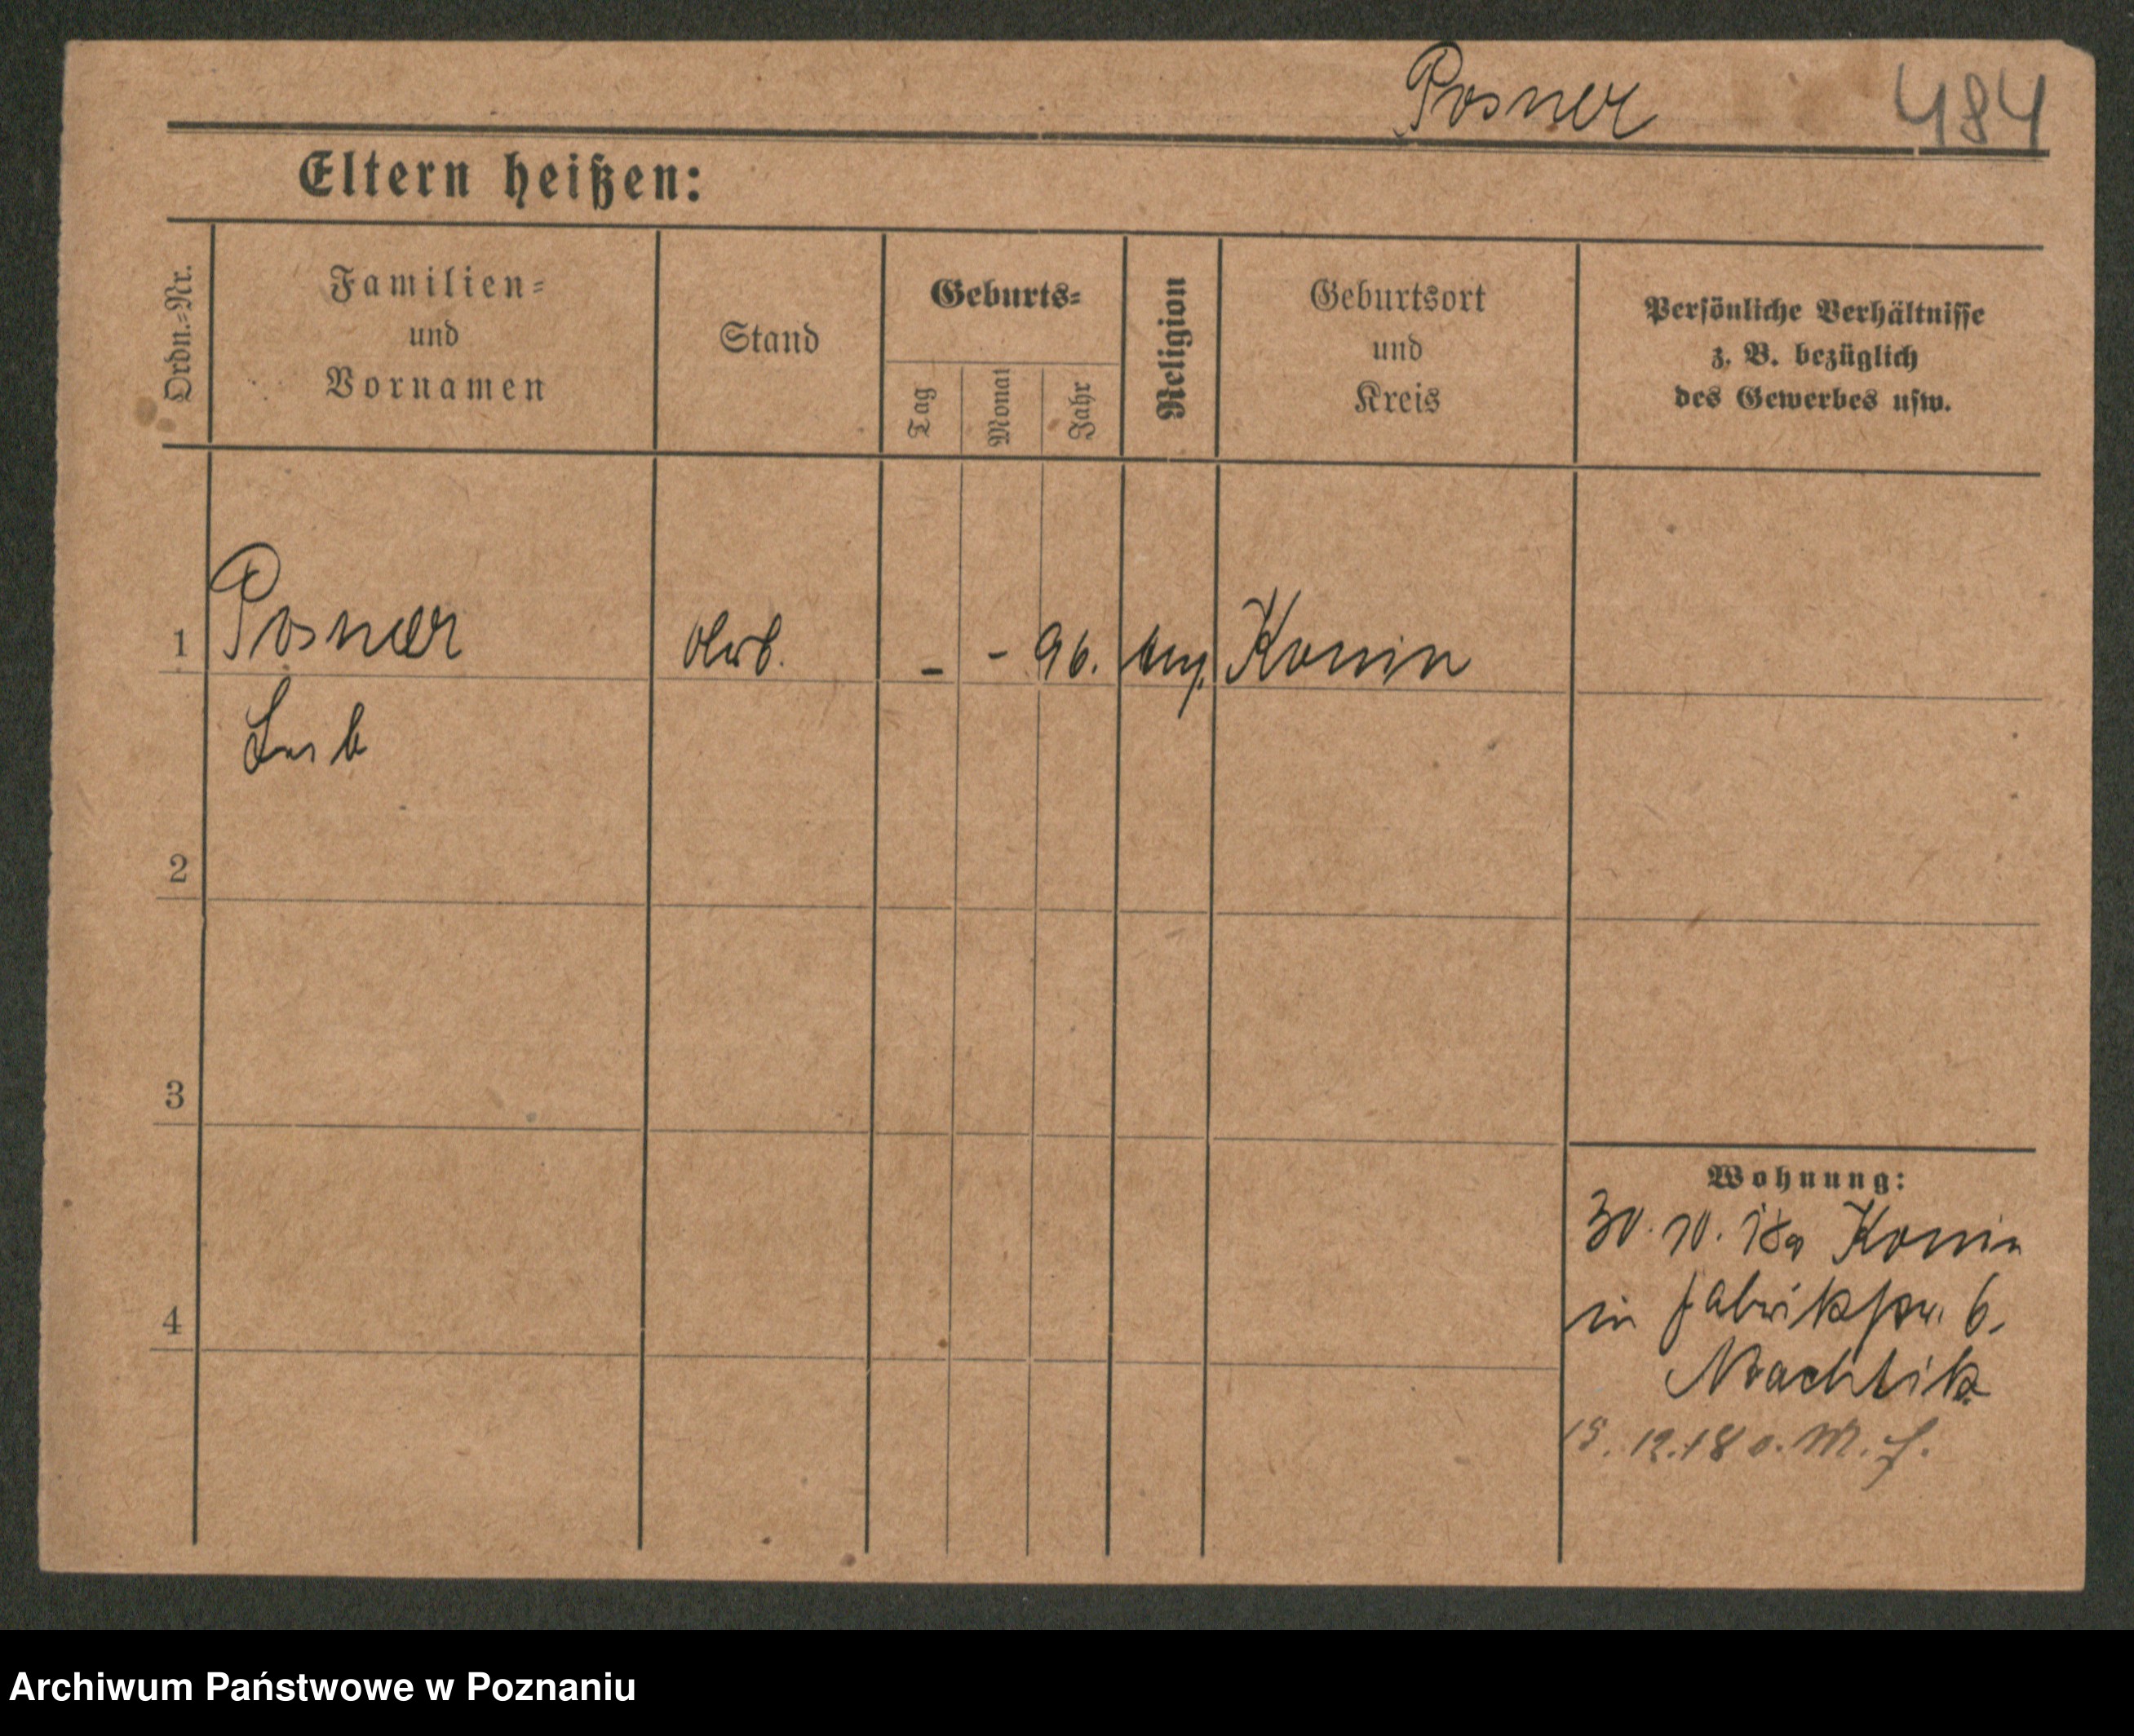 Posner 484
Eltern heißen:
Ordn.-Nr.
Familien-
und
Vornamen
Stand
Geburts-
Tag
Monat
Jahr
Religion
Geburtsort
und
Kreis
Persönliche Verhältnisse
z. B. bezüglich
des Gewerbes usw.
1 Posner - - 96. Konin
2
3
4
Wohnung:
30. 10. 18 Konin
in 6.
15. 12. 18 M.
Archiwum Państwowe w Poznaniu